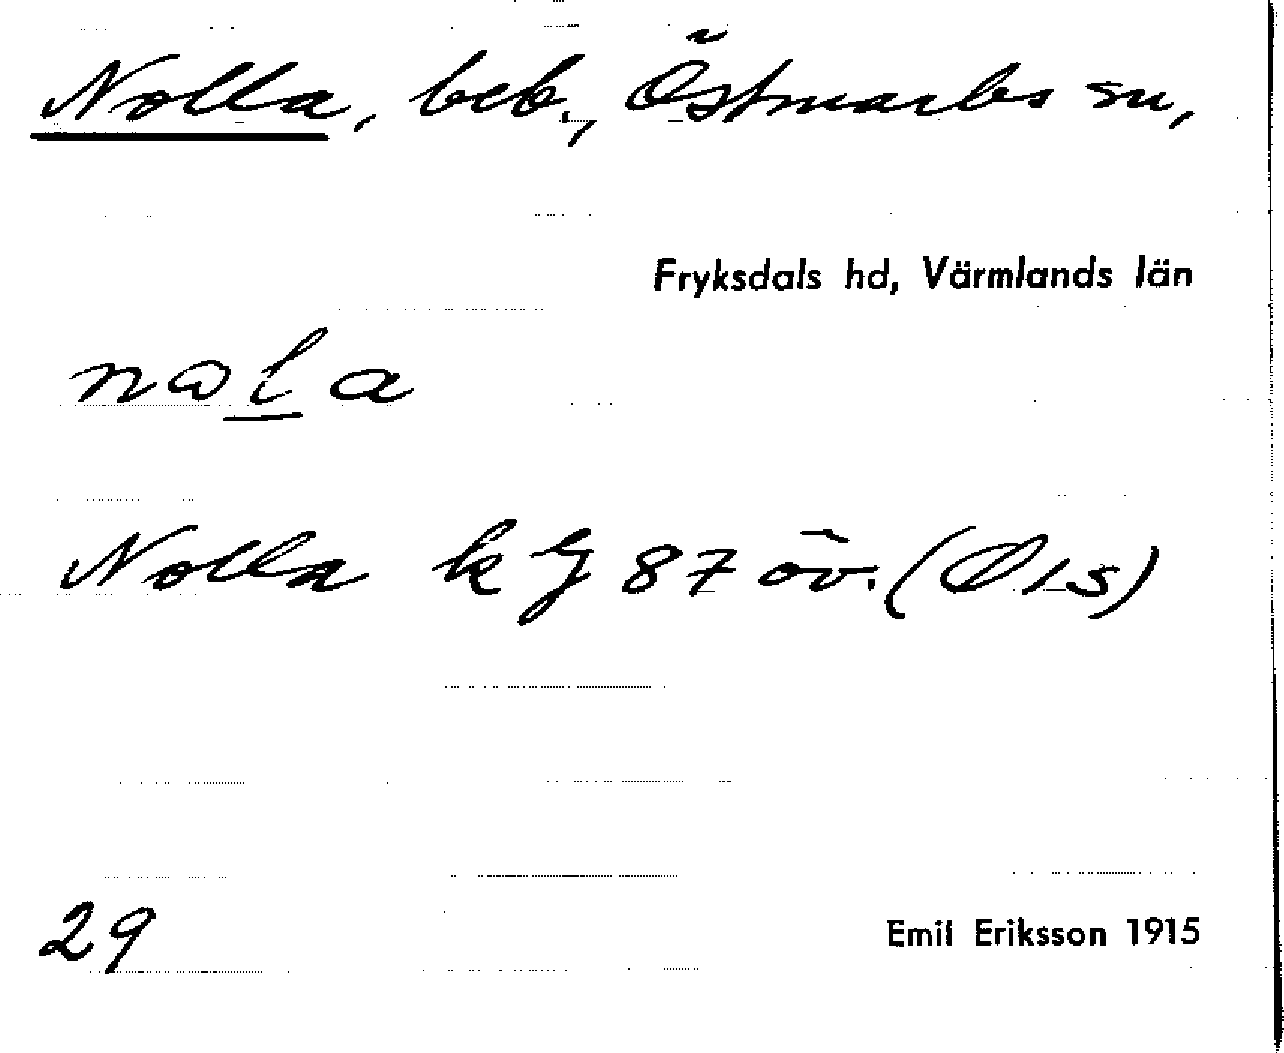 Nolla, beb., Östmarks sn,
Fryksdals hd, Värmlands län
nala
Nolla kG 87 öv. (Ö1s)
29
Emil Eriksson 1915